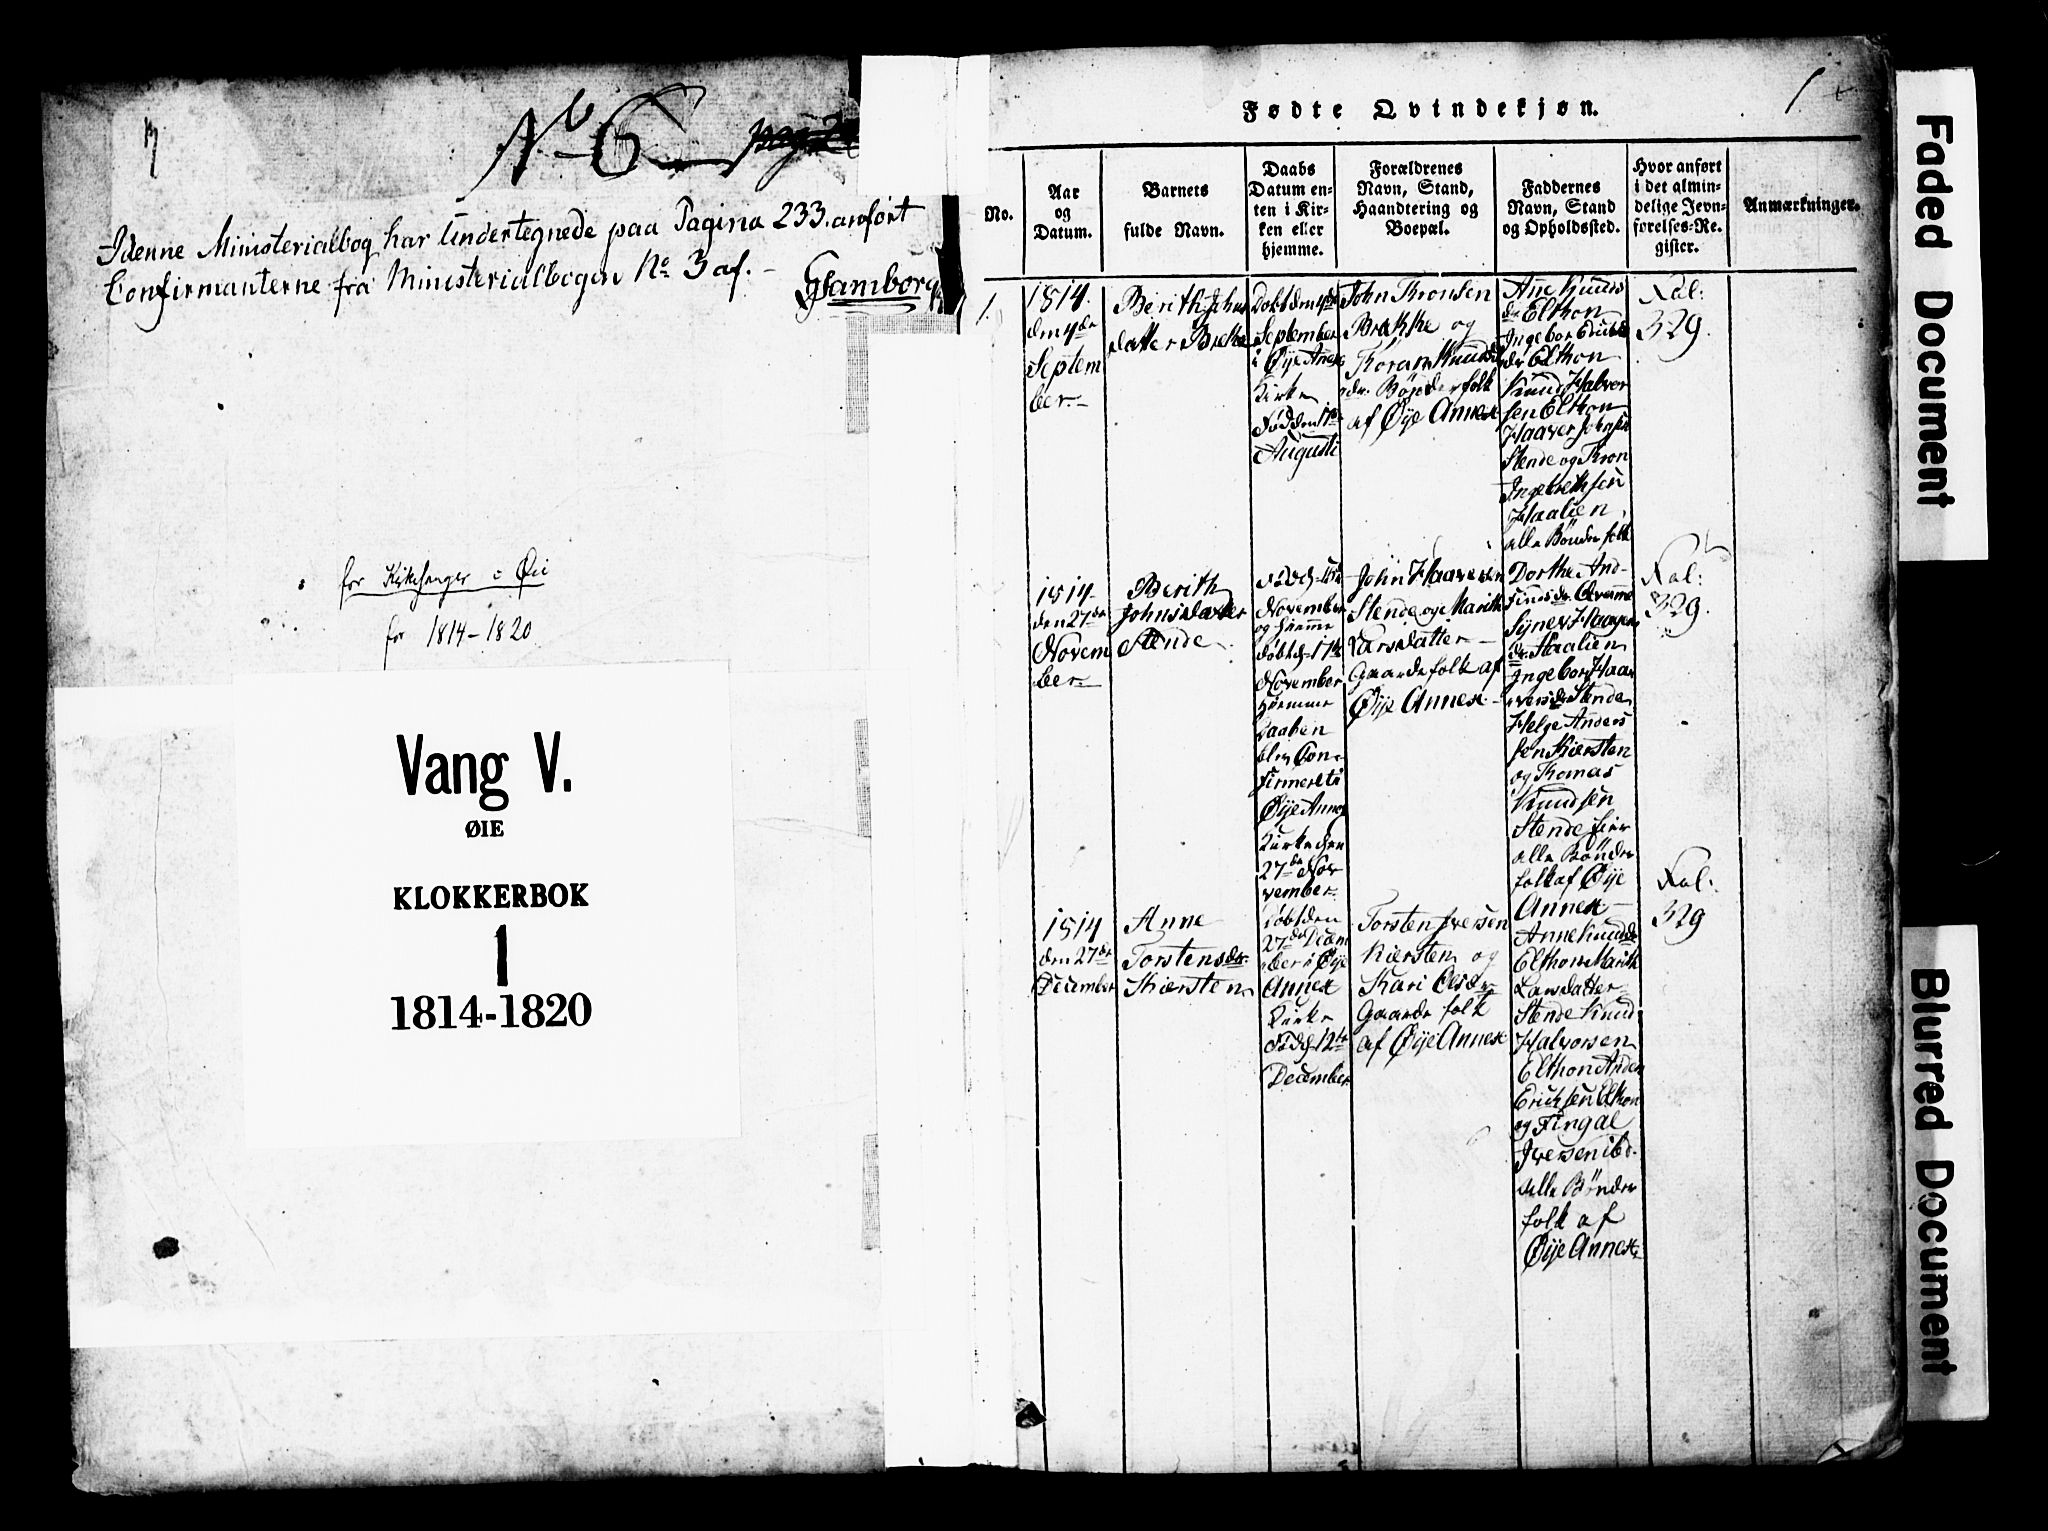 No 6
Idenne Ministerialbog har Undertegnede paa Pagina 233. anført
Confirmanterne fra Ministerialbogen No 3 af. -
Gramborg
for Kirkesanger i Øie
for 1814-1820
Vang V.
ØIE
KLOKKERBOK
1
1814-1820
1
Fødte Qvindekjøn.
No.
Aar
og
Datum.
Barnets
fulde Navn.
Daabs
Datum en-
ten i Kir-
ken eller
hjemme.
Forældrenes
Navn, Stand,
Haandtering og
Boepæl.
Faddernes
Navn, Stand
og Opholdssted.
Hvor anført
i det almin-
delige Jevn-
førelses-Re-
gister.
Anmærkninger.
1.
1814.
den 4de
Septem
ber.-
Berith Johns
datter Brekke
Døbt den 4de
September
i Øye Annex
Kirke
Fød den
Augusti
John Thronsen
Brekke og
Thoran Knuds
dr. Bønderfolk
af Øÿe Annex
Ane Knuds
dr Elthon
Ingebor
dr Elthon
Knud Halvor
sen Elthon
Haaver Johnsen
Stende og Thron
Ingebrethsen
Haalien
alle Bønder folk
Fol:
329.
1814.
den 27de
Novem
ber.-
Berith
Johnsdatter
Stende
November
og hiemme
døbt d. 17de
November
Hiemme
Daaben
blev Con-
firmert i
Øÿe Annex
Kirke den
27de Nov
vember.
John Haaversen
Stende og Marith
Larsdatter
Gaardefolk af
Øÿe Annex.
Dorthe And-
Haavers
dr. Haalien
Ingebor Haa
versdr Stende
Helge Anders
sen Kiersten
og Thomas
Knudsen
Stende
alle Bønder
folk af Øÿe
Annex
Fol:
329.
1814
den 27de
December
Anne
Torstensdr.
Kiersten
Døbt den
27de Decem
ber i Øÿe
Annex
Kirke
Fød d. 12te
December
Torsten Iversen
Kiersten og
Kari Olsdr
Gaarde folk
af Øÿe Annex
Anne Knudsdr
Elthon Marith
Larsdatter
Stende Knud
Halvorsen
Elthon Anders
Ericksen Elthon
og Fingal
Iversen ibd.
alle Bønder
folk af
Øÿe Annex
Fol:
329
Faded Document
Blurred Document